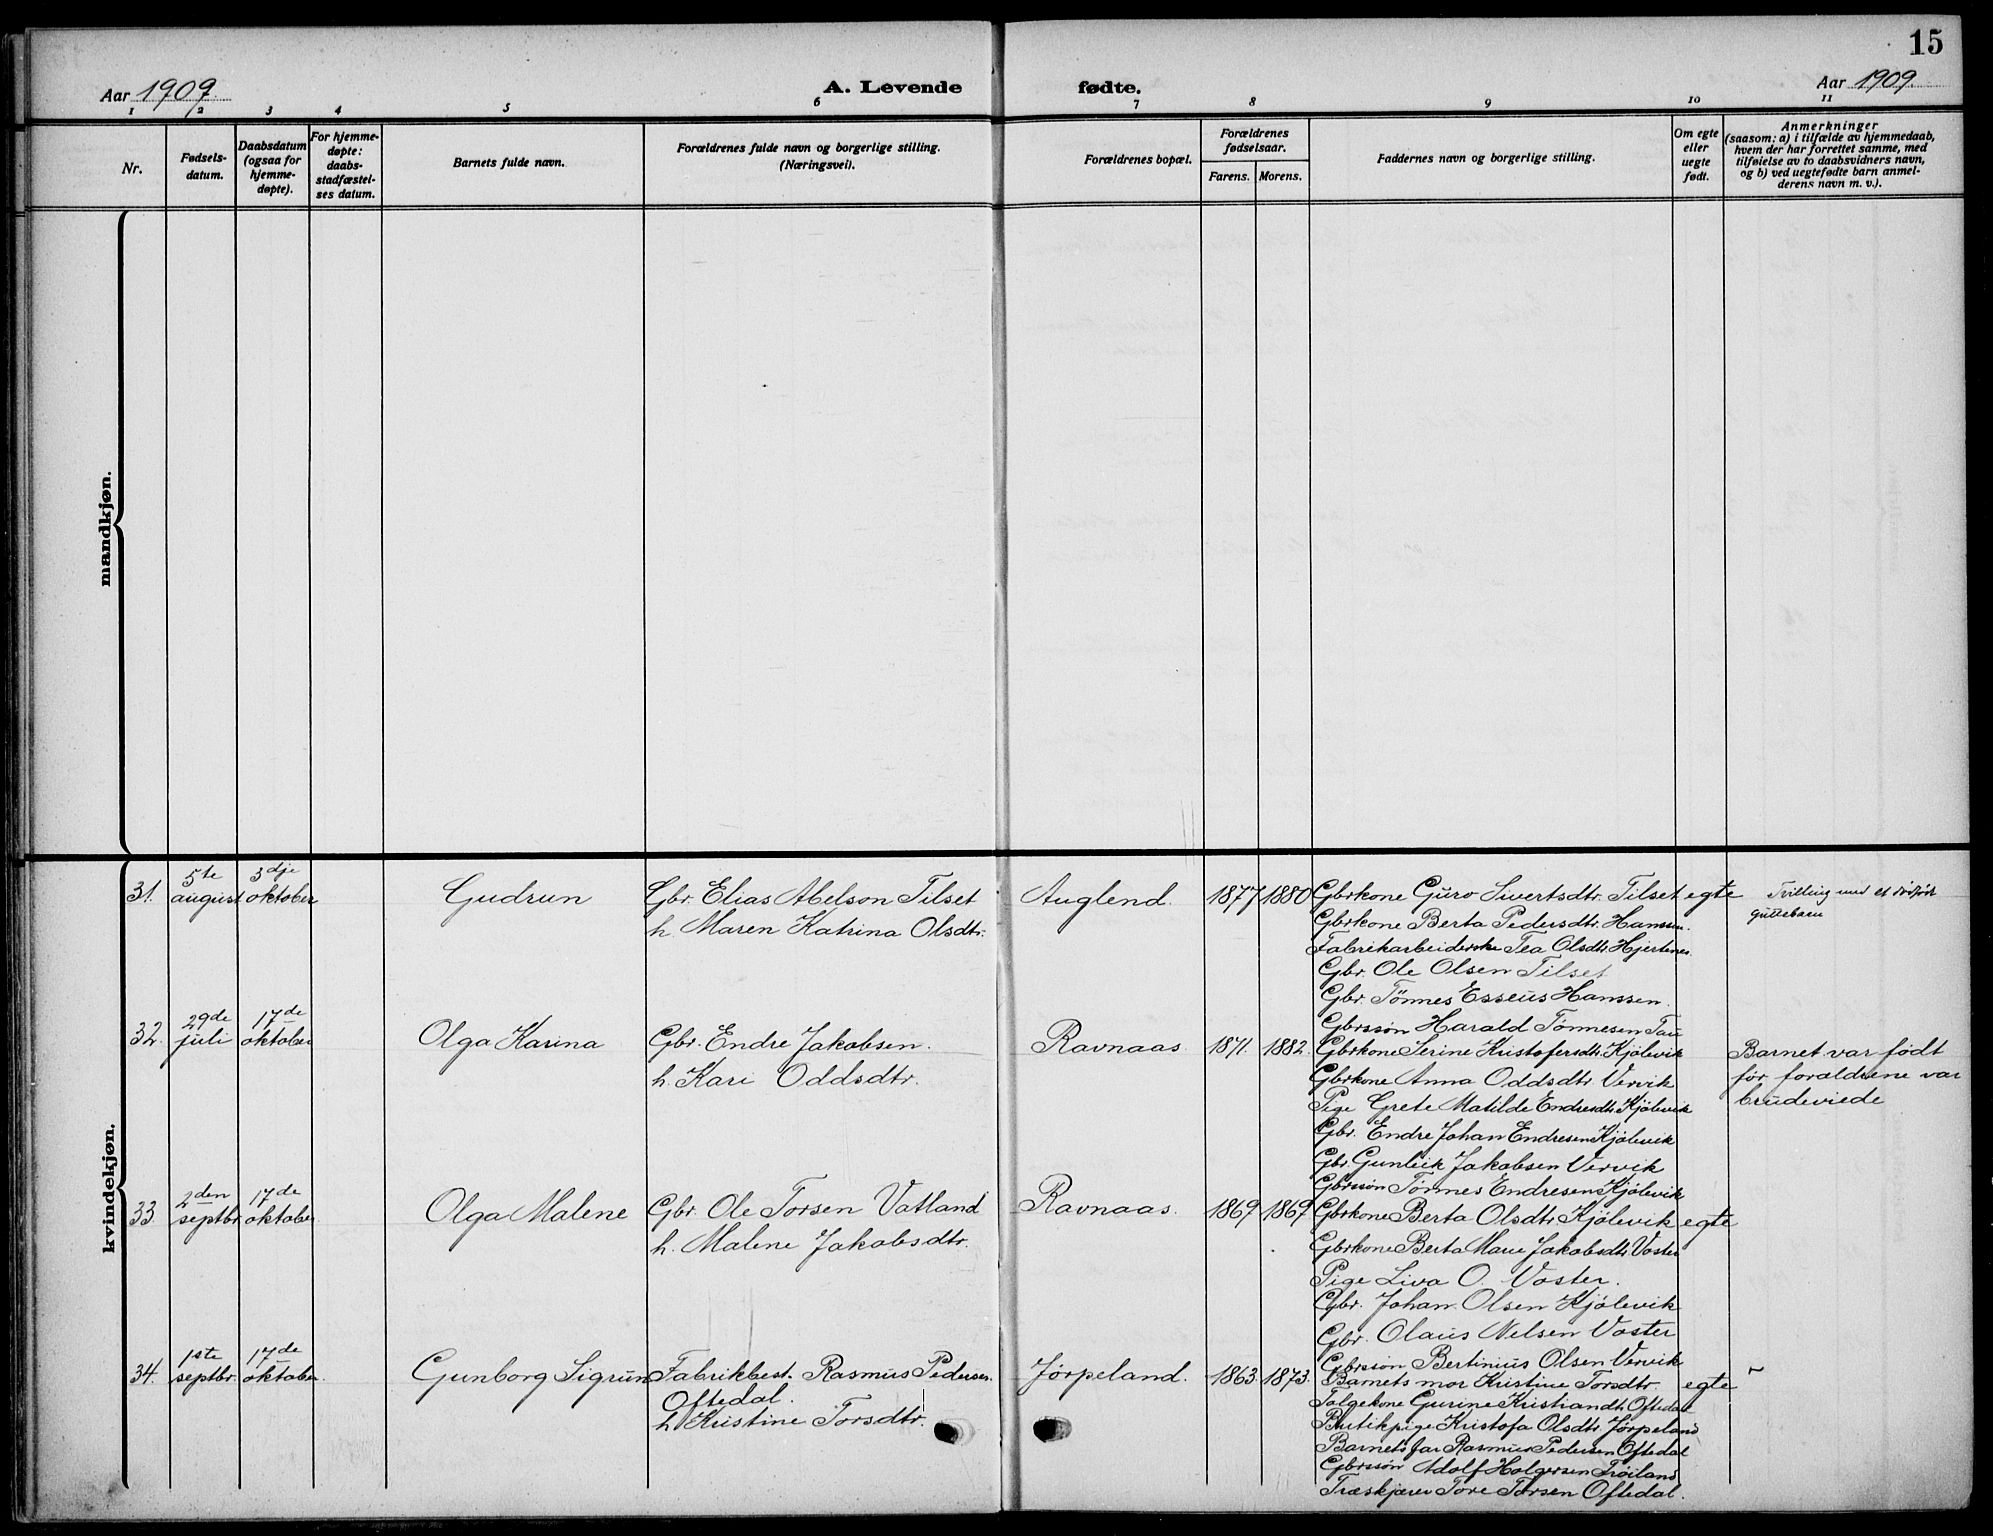 15
Aar 1909.
A. Levende fødte.
Aar 1909.
1 2 3 4 5 6 7 8 9 10 11
Nr.
Fødsels-
datum.
Daabsdatum
(ogsaa for
hjemme-
døpte).
For hjemme-
døpte:
daabs-
stadfæstel-
ses datum.
Barnets fulde navn.
Forældrenes fulde navn og borgerlige stilling.
(Næringsvei).
Forældrenes bopæl.
Forældrenes
fødselsaar.
Farens. Morens.
Faddernes navn og borgerlige stilling.
Om egte
eller
uegte
født.
Anmerkninger
(saasom: a) i tilfælde av hjemmedaab,
hvem der har forrettet samme, med
tilføielse av to daabsvidners navn,
og b) ved uegtefødte barn anmel-
derens navn m. v.).
mandkjøn.
kvindekjøn.
31.
5te
august
3dje
oktober
Gudrun
Gbr. Elias Abelson Tilset
h. Maren Katrina Olsdtr.
Auglend.
1877 1880
Gbrkone Guro Sivertsdtr. Tilset
Gbrkone Berta Pedersdtr. Hanssen.
Fabrikarbeiderske Tea Olsdtr. Hjertenes
Gbr. Ole Olsen Tilset
Gbr. Tönnes Esseus Hanssen.
Gbrssön Harald Tönnesen Tau
egte
Tvilling med et dødfødt
guttebarn
32.
29de
juli
17de
oktober
Olga Karina
Gbr. Endre Jakobsen.
h. Kari Oddsdtr.
Ravnaas
1871. 1882.
Gbrkone Serine Kristofersdtr. Kjölevik
Gbrkone Anna Oddsdtr. Vervik
Pige Grete Matilde Endresdtr. Kjölevik
Gbr. Endre Johan Endresen Kjölevik
Gbr. Gunleik Jakobsen Vervik
Gbrssön Tönnes Endresen Kjölevik
Barnet var födt
för forældrene var
brudeviede
33.
2den
septbr.
17de
oktober
Olga Malene
Gbr. Ole Torsen Vatland
h. Malene Jakobsdtr.
Ravnaas.
1869 1869
Gbrkone Berta Olsdtr. Kjölevik
Gbrkone Berta Marie Jakobsdtr. Voster
Pige Liva O. Voster.
Gbr. Johan Olsen Kjölevik
Gbr. Olaus Nelsen Voster
Gbrssön Bertinius Olsen Vervik
egte
34.
1ste
septbr.
17de
oktober.
Gunborg Sigrun
Fabrikbest. Rasmus Pedersen
Oftedal.
h. Kristine Torsdtr.
Jørpeland.
1863. 1873.
Barnets mor Kristine Torsdtr.
Gurine Kristiandtr. Oftedal
Butikpige Kristofa Olsdtr. Jørpeland
Barnets far Rasmus Pedersen Oftedal
Gbrssön Adolf Holgersen Tröiland
Træskjærer Tore Torsen Oftedal.
egte